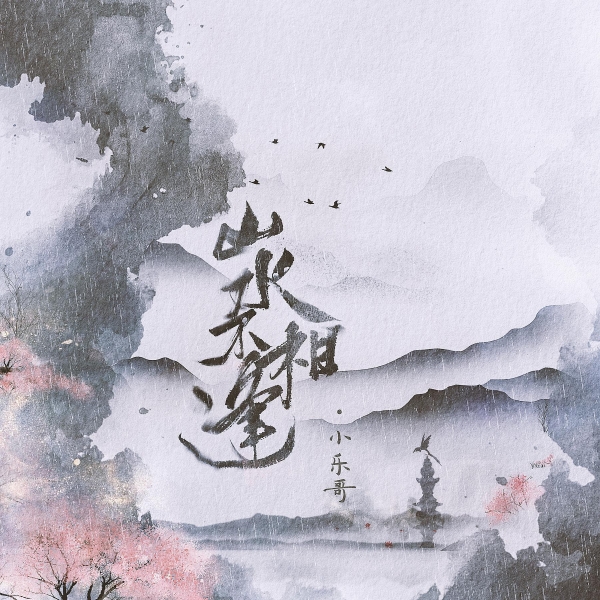 山水不相逢
小乐哥